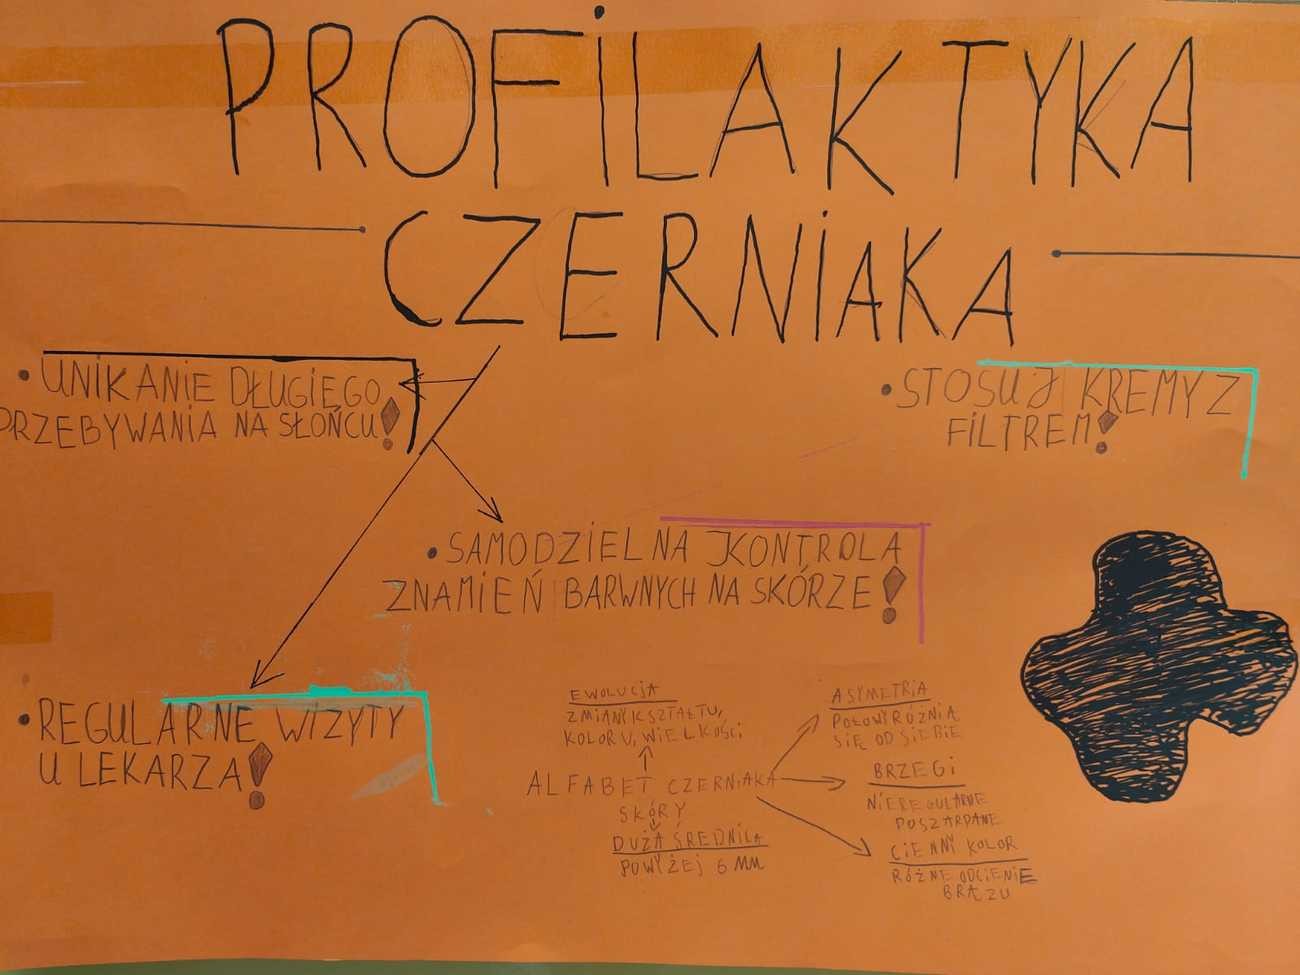 PROFILAKTYKA
CZERNIAKA
• UNIKANIE DŁUGIEGO
PRZEBYWANIA NA SŁOŃCU!
• STOSUJ KREMY Z
FILTREM!
• SAMODZIELNA KONTROLA
ZNAMIEŃ BARWNYCH NA SKÓRZE!
• REGULARNE WIZYTY
U LEKARZA!
EWOLUCJA
ZMIANY KSZTAŁTU,
KOLORU, WIELKOŚCI
ALFABET CZERNIAKA
SKÓRY
DUŻA ŚREDNICA
POWYŻEJ 6 MM
ASYMETRIA
POŁOWY RÓŻNIĄ
SIĘ OD SIEBIE
BRZEGI
NIEREGULARNE
POSZARPANE
CIEMNY KOLOR
RÓŻNE ODCIENIE
BRĄZU